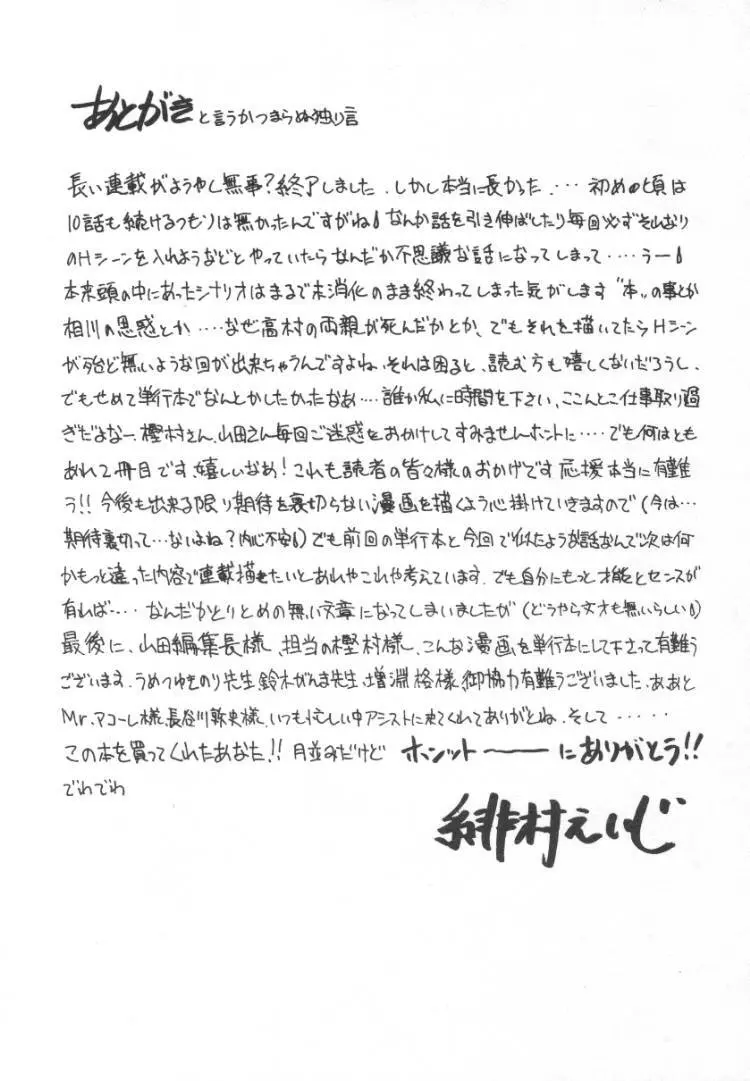 あとがき と言うかつまらぬ独り言
長い連載がようやく無事?終了しました.しかし本当に長かった.… 初めの頃は
10話も続けるつもりは無かったんですがね なんか話を引き伸ばしたり毎回必ずそれなり
のHシーンを入れようなどとやっていたらなんだか不思議な話になってしまって‥‥うー
本来頭の中にあったシナリオはまるで未消化のまま終わってしまった気がします“本„の事とか
相川の思惑とか‥‥なぜ高村の両親が死んだかとか、でもそれを描いてたらHシーン
が殆ど無いような回が出来ちゃうんですよね.それは困ると、読む方も嬉しくないだろうし、
でもせめて単行本でなんとかしたかったなあ‥‥誰か私に時間を下さい、ここんとこ仕事取り過
ぎだよなー、樫村さん、山田さん毎回ご迷惑をおかけしてすみませんホントに‥‥でも何はとも
あれ2冊目です、嬉しいなあ!これも読者の皆々様のおかげです 応援本当に有難
う!!今後も出来る限り期待を裏切らない漫画を描くよう心掛けていきますので(今は…
期待裏切って…ないよね?内心不安)でも前回の単行本と今回で似たような話なんで次は何
かもっと違った内容で連載描きたいとあれやこれや考えています.でも自分にもっと才能とセンスが
有れば‥‥ なんだかとりとめの無い文章になってしまいましたが(どうやら文才も無いらしい)
最後に、山田編集長様、担当の樫村様、こんな漫画を単行本にして下さって有難う
ございます.うめつゆきのり先生 鈴木がんま先生、増淵格様、御協力有難うございました.ああと
Mr.アコーレ様、長谷川 史様、いつも忙しい中アシストに来てくれてありがとね.そして‥‥
この本を買ってくれたあなた!!月並みだけど ホンットーーーにありがとう!!
でわでわ
緋村えいじ